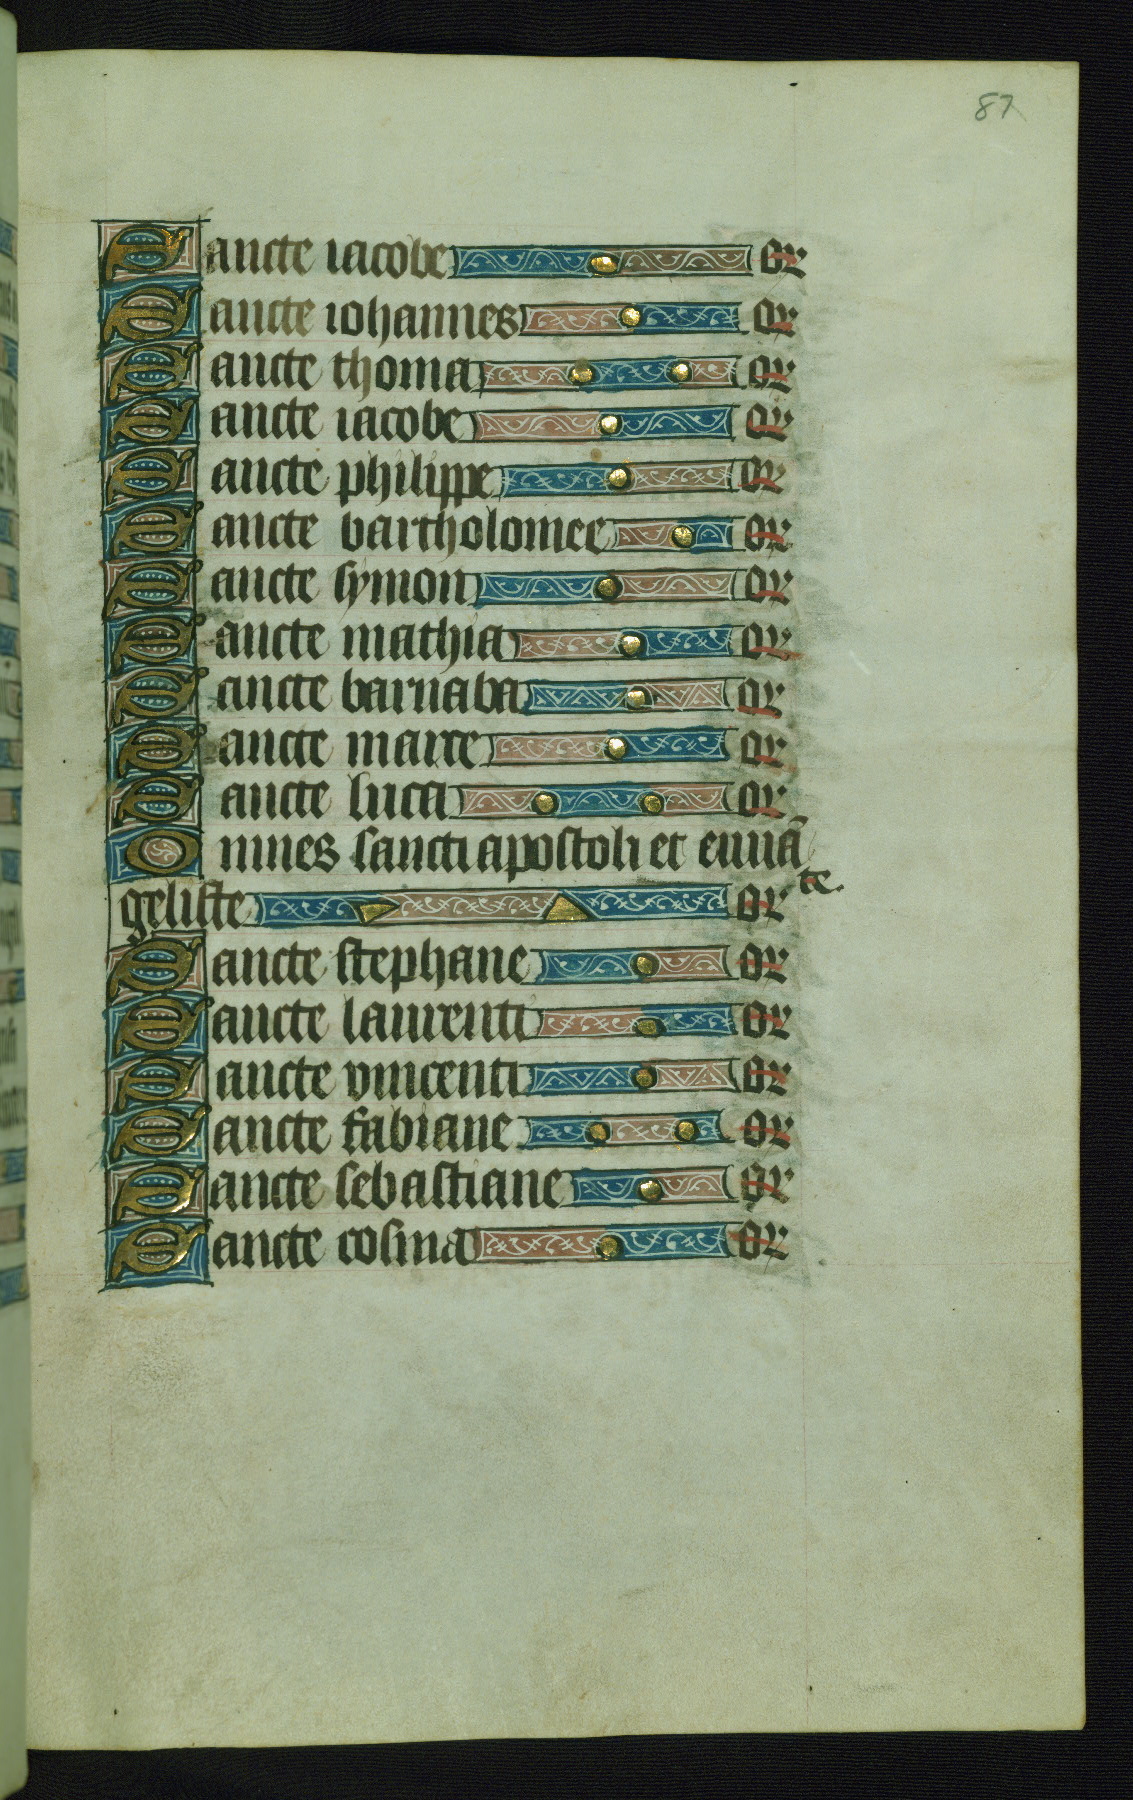 87
Sancte iacobe or
Sancte iohannes or
Sancte thoma or
Sancte iacobe or
Sancte philippe or
Sancte bartholomee or
Sancte symon or
Sancte mathia or
Sancte barnaba or
Sancte marce or
Sancte luca or
Omnes sancti apostoli et euuā
geliste or te.
Sancte stephane or
Sancte laurenti or
Sancte vincenti or
Sancte fabiane or
Sancte sebastiane or
Sancte cosma or